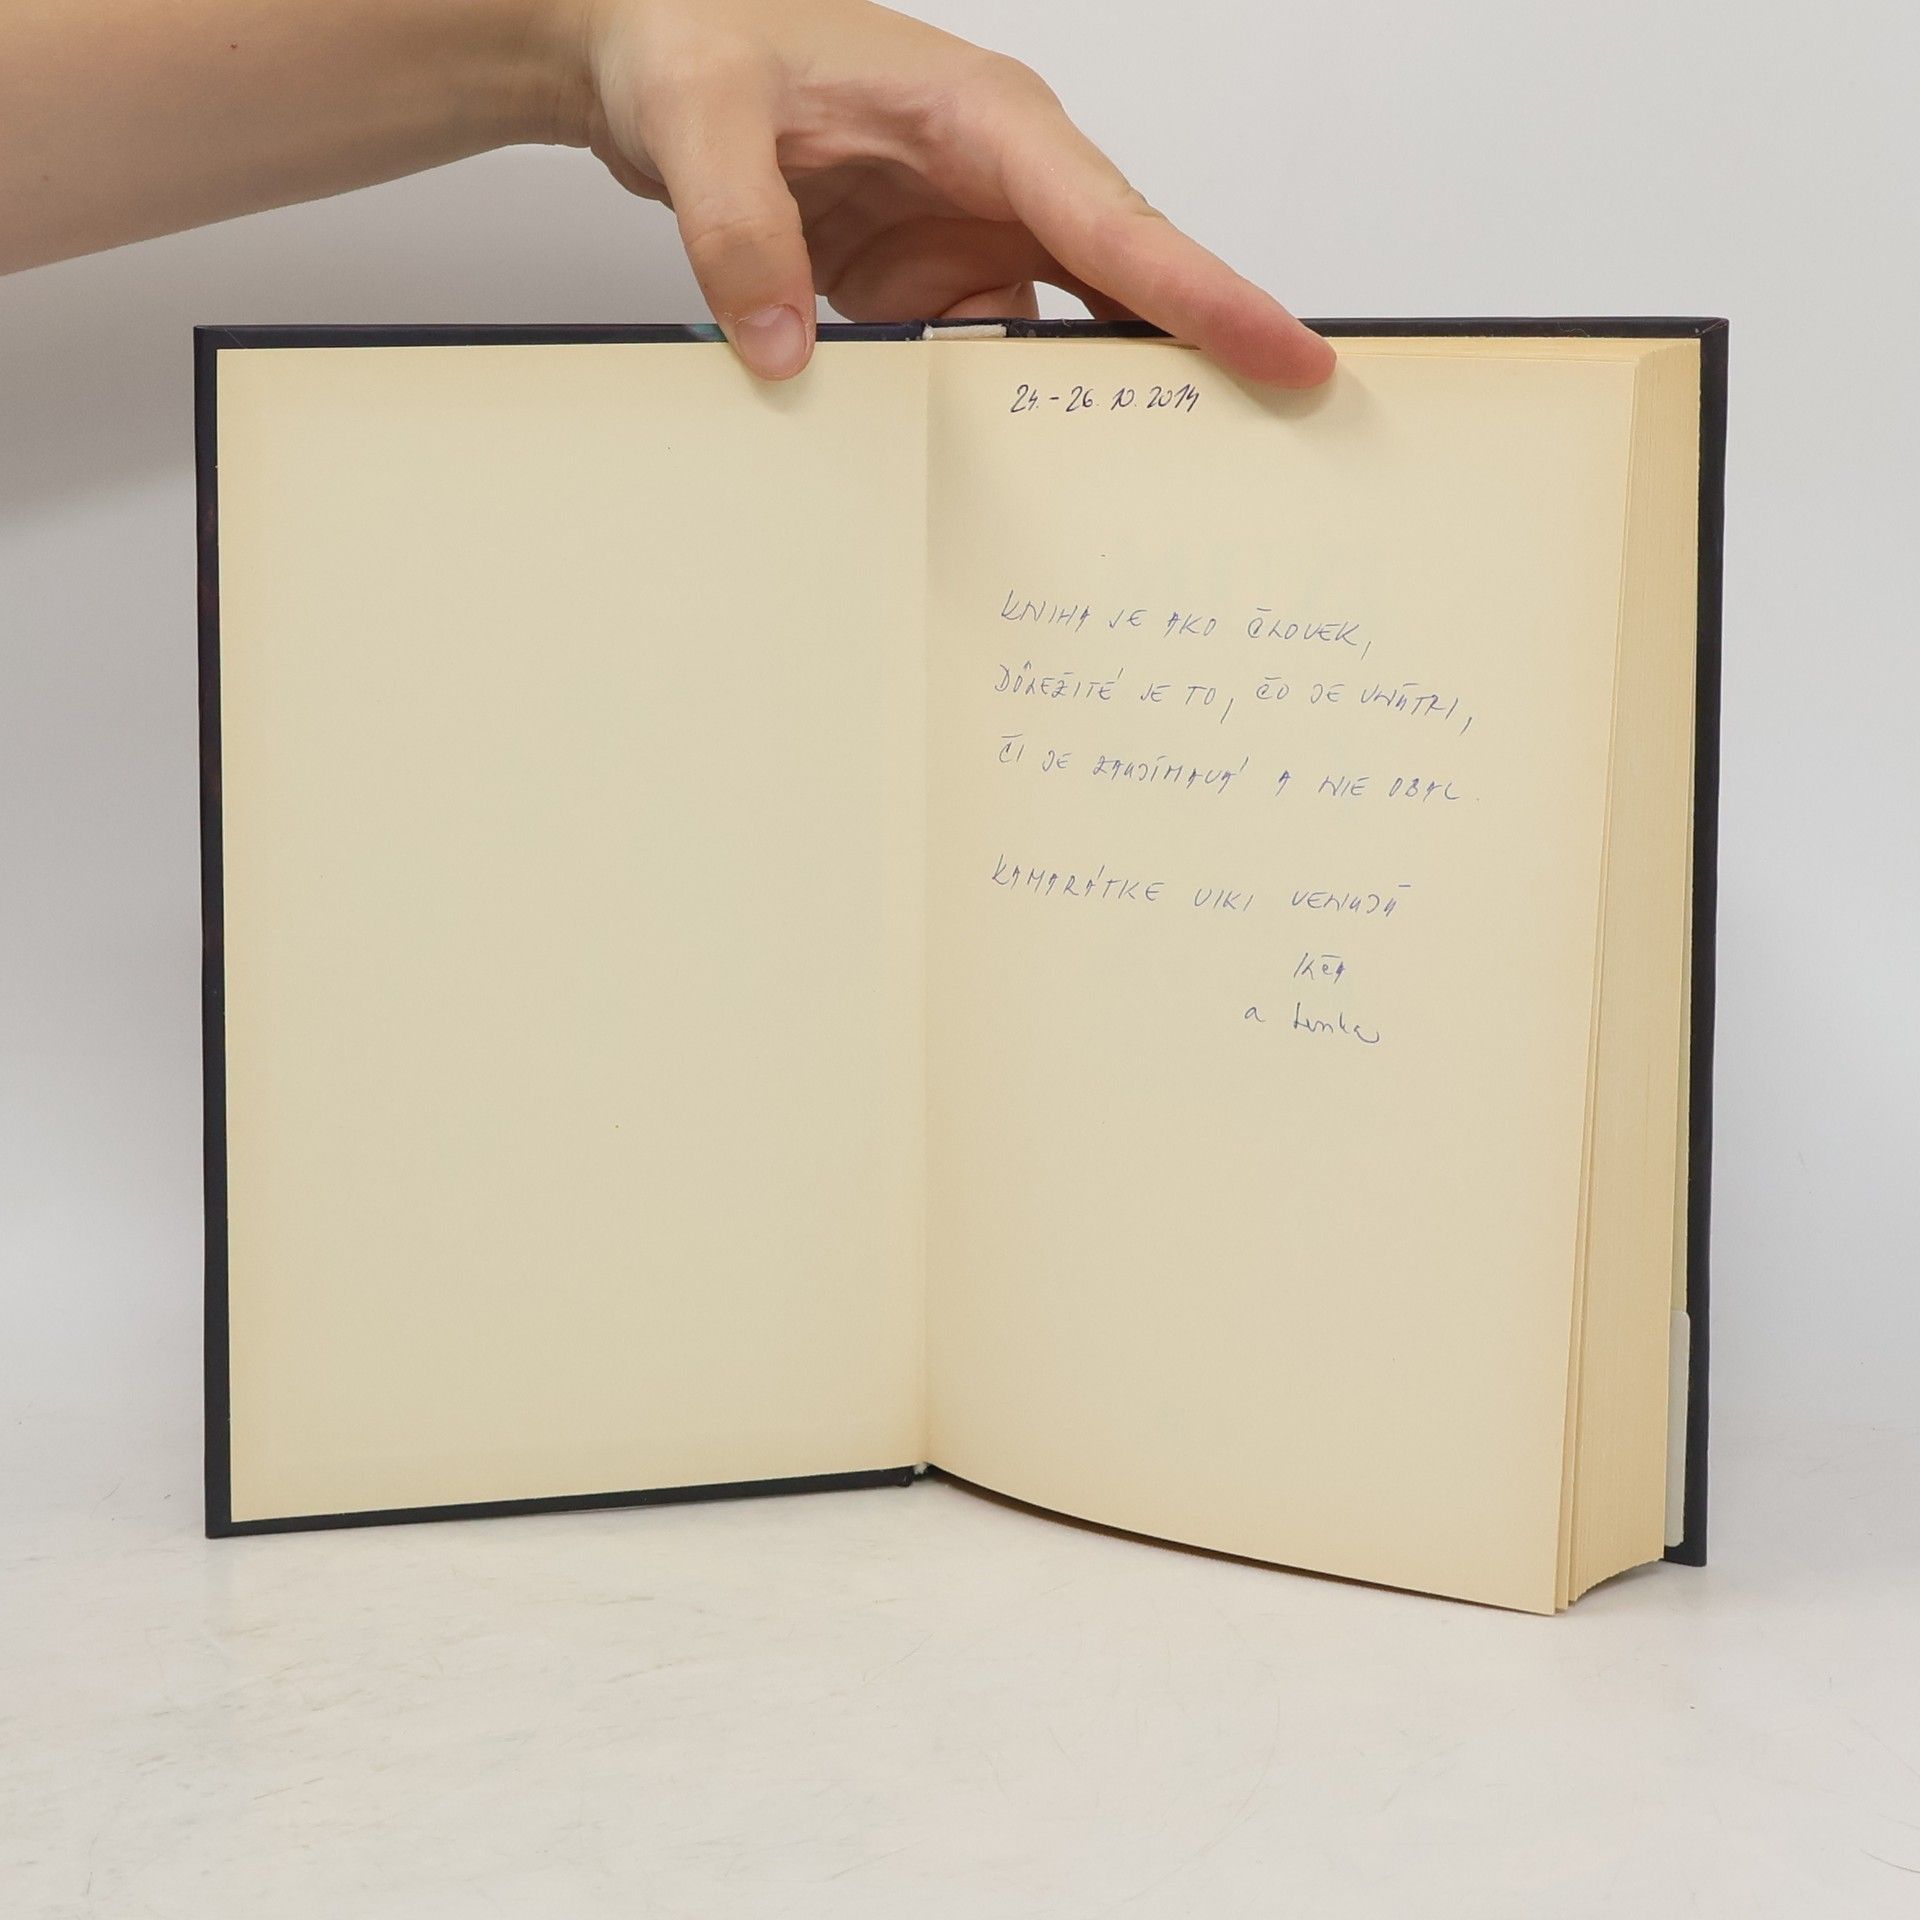 24. - 26. 10. 2014
KNIHA JE AKO ČLOVEK,
DÔLEŽITÉ JE TO, ČO JE VNÚTRI,
ČI JE ZAUJÍMAVÁ A NIE OBAL.
KAMARÁTKE VIKI VENUJÚ
a Lenka